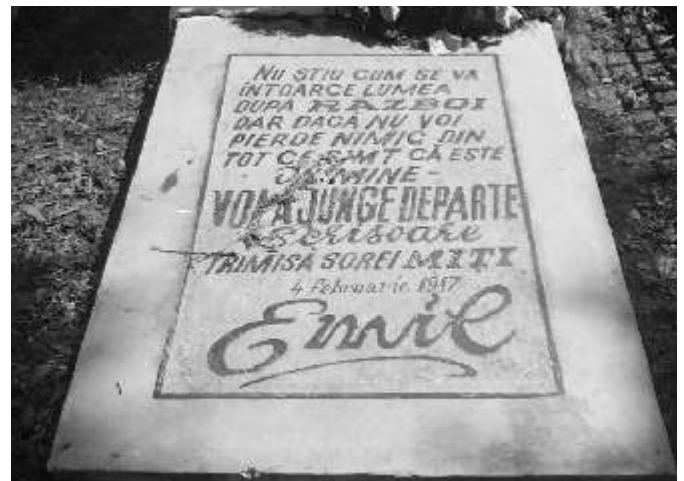 NU STIU CUM SE VA
INTOARCE LUMEA
DUPA RAZBOI
DAR DACA NU VOI
PIERDE NIMIC DIN
TOT CE SIMT CĂ ESTE
IN MINE -
VOI AJUNGE DEPARTE
scrisoare
TRIMISA SOREI MIȚI
4 Februarie 1917
Emil